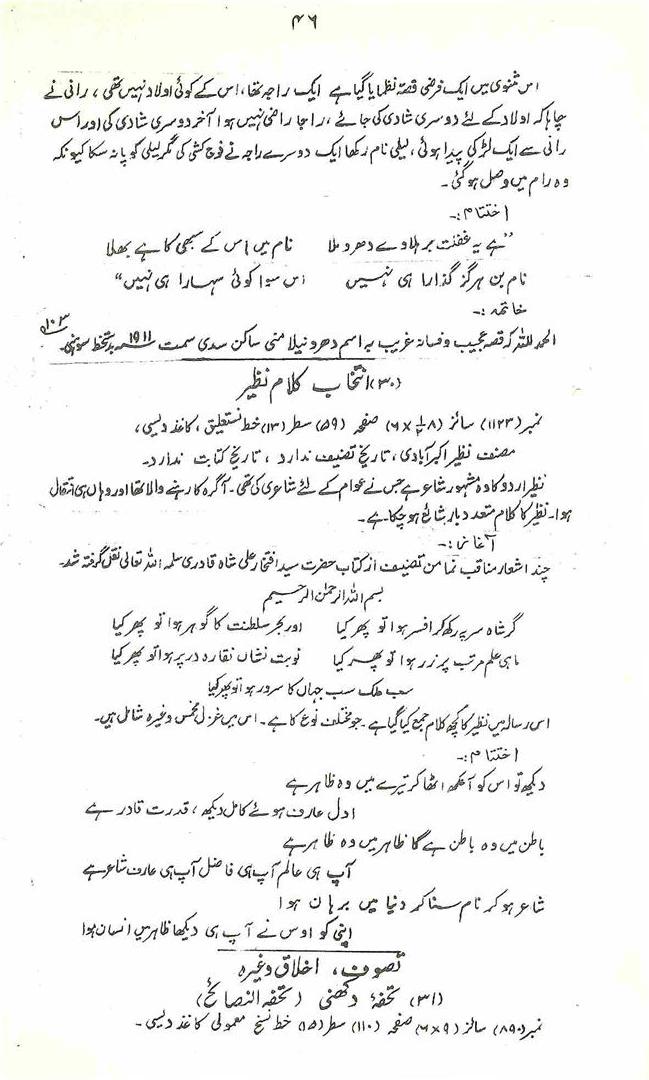 ۴۶
اس مثنوی میں ایک فرضی قصہ نظمایا گیا ہے ایک راجہ تھا، اس کے کوئی اولاد نہیں تھی، رانی نے
چاہا کہ اولاد کے لئے دوسری شادی کی جائے، راجا راضی نہیں ہوا آخر دوسری شادی کی اور اس
رانی سے ایک لڑکی پیدا ہوئی، لیلی نام رکھا ایک دوسرے راجہ نے فوج کشی کی مگر لیلی کو پا نہ سکا کیونکہ
وہ رام میں وصل ہو گئی۔
اختتام:-
”ہے یہ غفلت بر ملاوے دھرو ملا نام میں اس کے سبھی کا ہے بھلا
نام بن ہرگز گذارا ہی نہیں اس سوا کوئی سہارا ہی نہیں“
خاتمہ:-
الحمد للہ کہ قصہ عجیب و فسانہ غریب بہ اسم دھرونیلا منی ساکن سدی سمت ۱۹۱۱ بدستخط سوہنی
(۳۰) انتخاب کلام نظیر
نمبر (۱۱۲۳) سائز (۸½ × ۶) صفحہ (۵۹) سطر (۱۳) خط نستعلیق، کاغذ دیسی،
مصنف نظیر اکبرآبادی، تاریخ تصنیف ندارد، تاریخ کتابت ندارد۔
نظیر اردو کا وہ مشہور شاعر ہے جس نے عوام کے لئے شاعری کی تھی۔ آگرہ کا رہنے والا تھا اور وہاں ہی انتقال
ہوا۔ نظیر کا کلام متعدد بار شائع ہو چکا ہے۔
آغاز:-
چند اشعار مناقب نما من تصنیف از کتاب حضرت سید افتخار علی شاہ قادری سلمہ اللہ تعالیٰ نقل گرفتہ شد۔
بسم اللہ الرحمن الرحیم
گر شاہ سر پہ رکھ کر افسر ہوا تو پھر کیا اور بحر سلطنت کا گوہر ہوا تو پھر کیا
ماہی علم مرتب پر زر ہوا تو پھر کیا نوبت نشاں نقارہ در پر ہوا تو پھر کیا
سب ملک سب جہاں کا سرور ہوا تو پھر کیا
اس رسالہ میں نظیر کا کچھ کلام جمع کیا گیا ہے۔ جو مختلف نوع کا ہے۔ اس میں غزل مخمس وغیرہ شامل ہیں۔
اختتام:-
دیکھ تو اس کو آنکھ اٹھا کر تیرے میں وہ ظاہر ہے
اول عارف ہوئے کامل دیکھ، قدرت قادر ہے
باطن میں وہ باطن ہے گا ظاہر میں وہ ظاہر ہے
آپ ہی عالم آپ ہی فاضل آپ ہی عارف شاعر ہے
شاعر ہو کر نام سنا کر دنیا میں برہان ہوا
اپنی کو اوس نے آپ ہی دیکھا ظاہر میں انسان ہوا
تصوف، اخلاق وغیرہ
(۳۱) تحفۂ دکھنی (تحفہ النصائح)
نمبر (۸۹۰) سائز (۹×۶) صفحہ (۱۱۰) سطر (۱۵) خط نسخ معمولی کاغذ دیسی۔